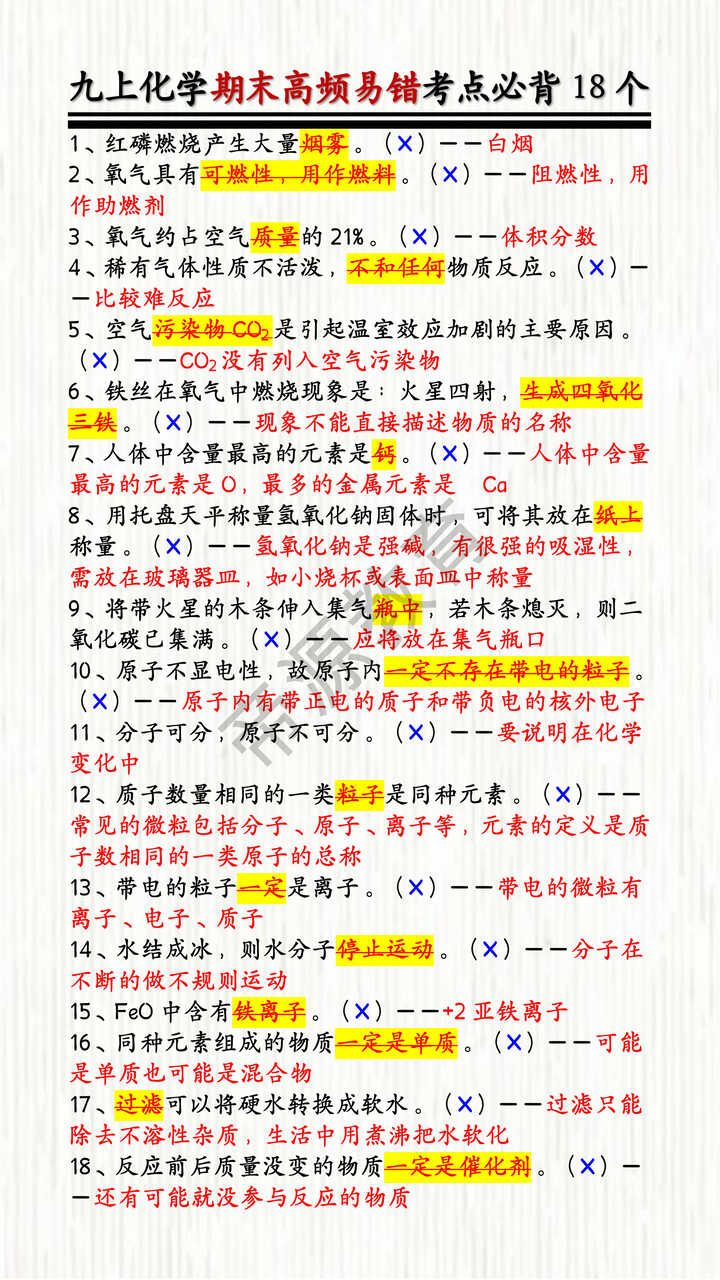 九上化学期末高频易错考点必背18个
1、红磷燃烧产生大量烟雾。（×）——白烟
2、氧气具有可燃性，用作燃料。（×）——阻燃性，用
作助燃剂
3、氧气约占空气质量的21%。（×）——体积分数
4、稀有气体性质不活泼，不和任何物质反应。（×）—
—比较难反应
5、空气污染物CO₂是引起温室效应加剧的主要原因。
（×）——CO₂没有列入空气污染物
6、铁丝在氧气中燃烧现象是：火星四射，生成四氧化
三铁。（×）——现象不能直接描述物质的名称
7、人体中含量最高的元素是钙。（×）——人体中含量
最高的元素是O，最多的金属元素是 Ca
8、用托盘天平称量氢氧化钠固体时，可将其放在纸上
称量。（×）——氢氧化钠是强碱，有很强的吸湿性，
需放在玻璃器皿，如小烧杯或表面皿中称量
9、将带火星的木条伸入集气瓶中，若木条熄灭，则二
氧化碳已集满。（×）——应将放在集气瓶口
10、原子不显电性，故原子内一定不存在带电的粒子。
（×）——原子内有带正电的质子和带负电的核外电子
11、分子可分，原子不可分。（×）——要说明在化学
变化中
12、质子数量相同的一类粒子是同种元素。（×）——
常见的微粒包括分子、原子、离子等，元素的定义是质
子数相同的一类原子的总称
13、带电的粒子一定是离子。（×）——带电的微粒有
离子、电子、质子
14、水结成冰，则水分子停止运动。（×）——分子在
不断的做不规则运动
15、FeO中含有铁离子。（×）——+2亚铁离子
16、同种元素组成的物质一定是单质。（×）——可能
是单质也可能是混合物
17、过滤可以将硬水转换成软水。（×）——过滤只能
除去不溶性杂质，生活中用煮沸把水软化
18、反应前后质量没变的物质一定是催化剂。（×）—
—还有可能就没参与反应的物质
帝源教育